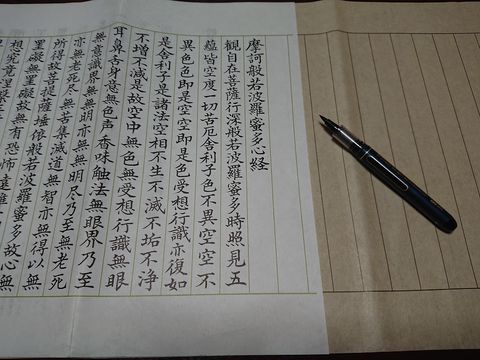 摩訶般若波羅蜜多心経
觀自在菩薩行深般若波羅蜜多時照見五
蘊皆空度一切苦厄舎利子色不異空空不
異色色即是空空即是色受想行識亦復如
是舎利子是諸法空相不生不滅不垢不浄
不増不減是故空中無色無受想行識無眼
耳鼻舌身意無色声香味触法無眼界乃至
無意識界無無明亦無無明尽乃至無老死
亦無老死尽無苦集滅道無智亦無得以無
所得故菩提薩埵依般若波羅蜜多故心無
罣礙無罣礙故無有恐怖遠離
想究竟涅槃三